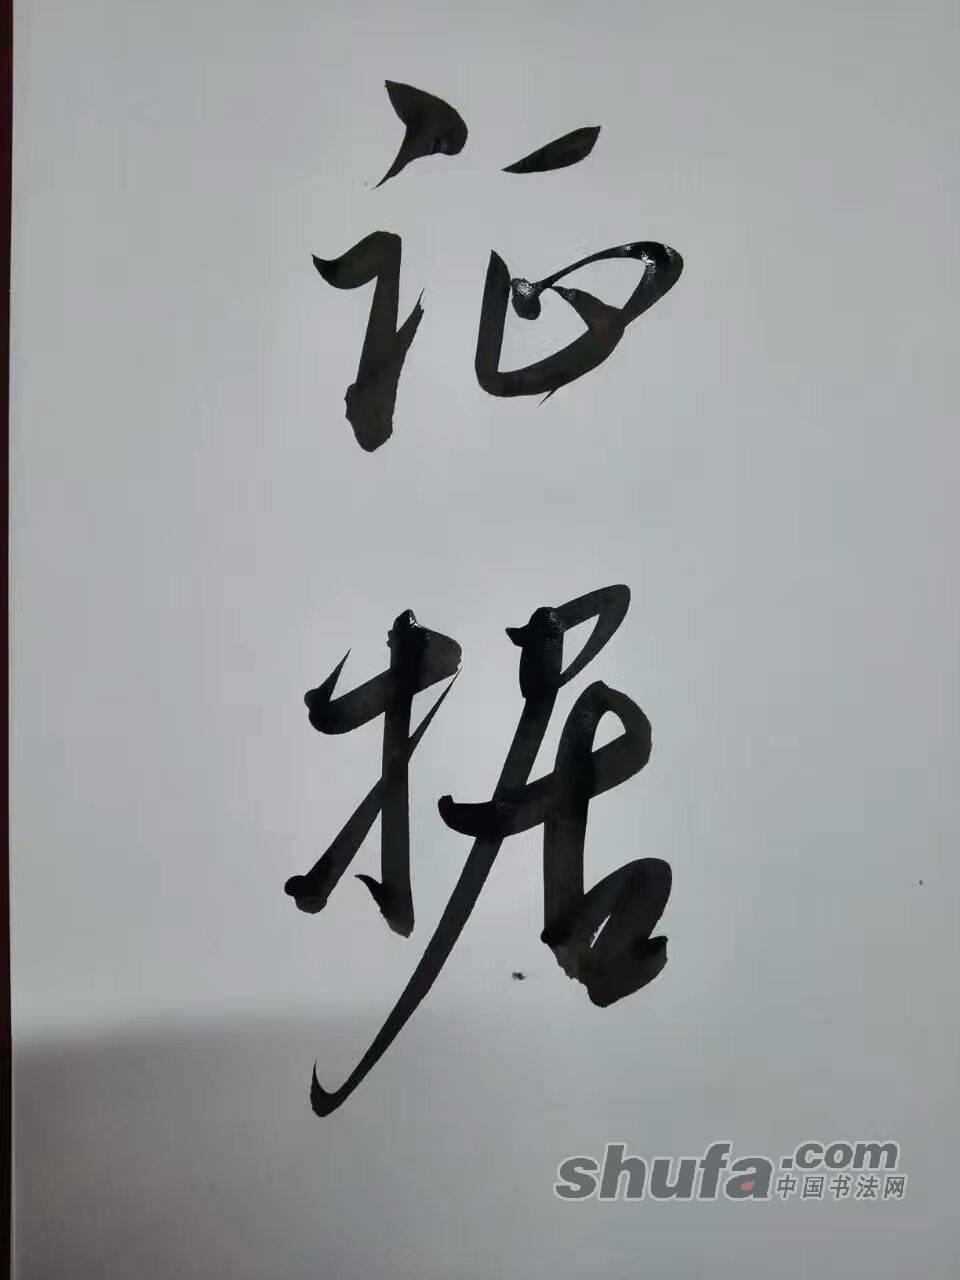 证
据
shufa.com
中国书法网